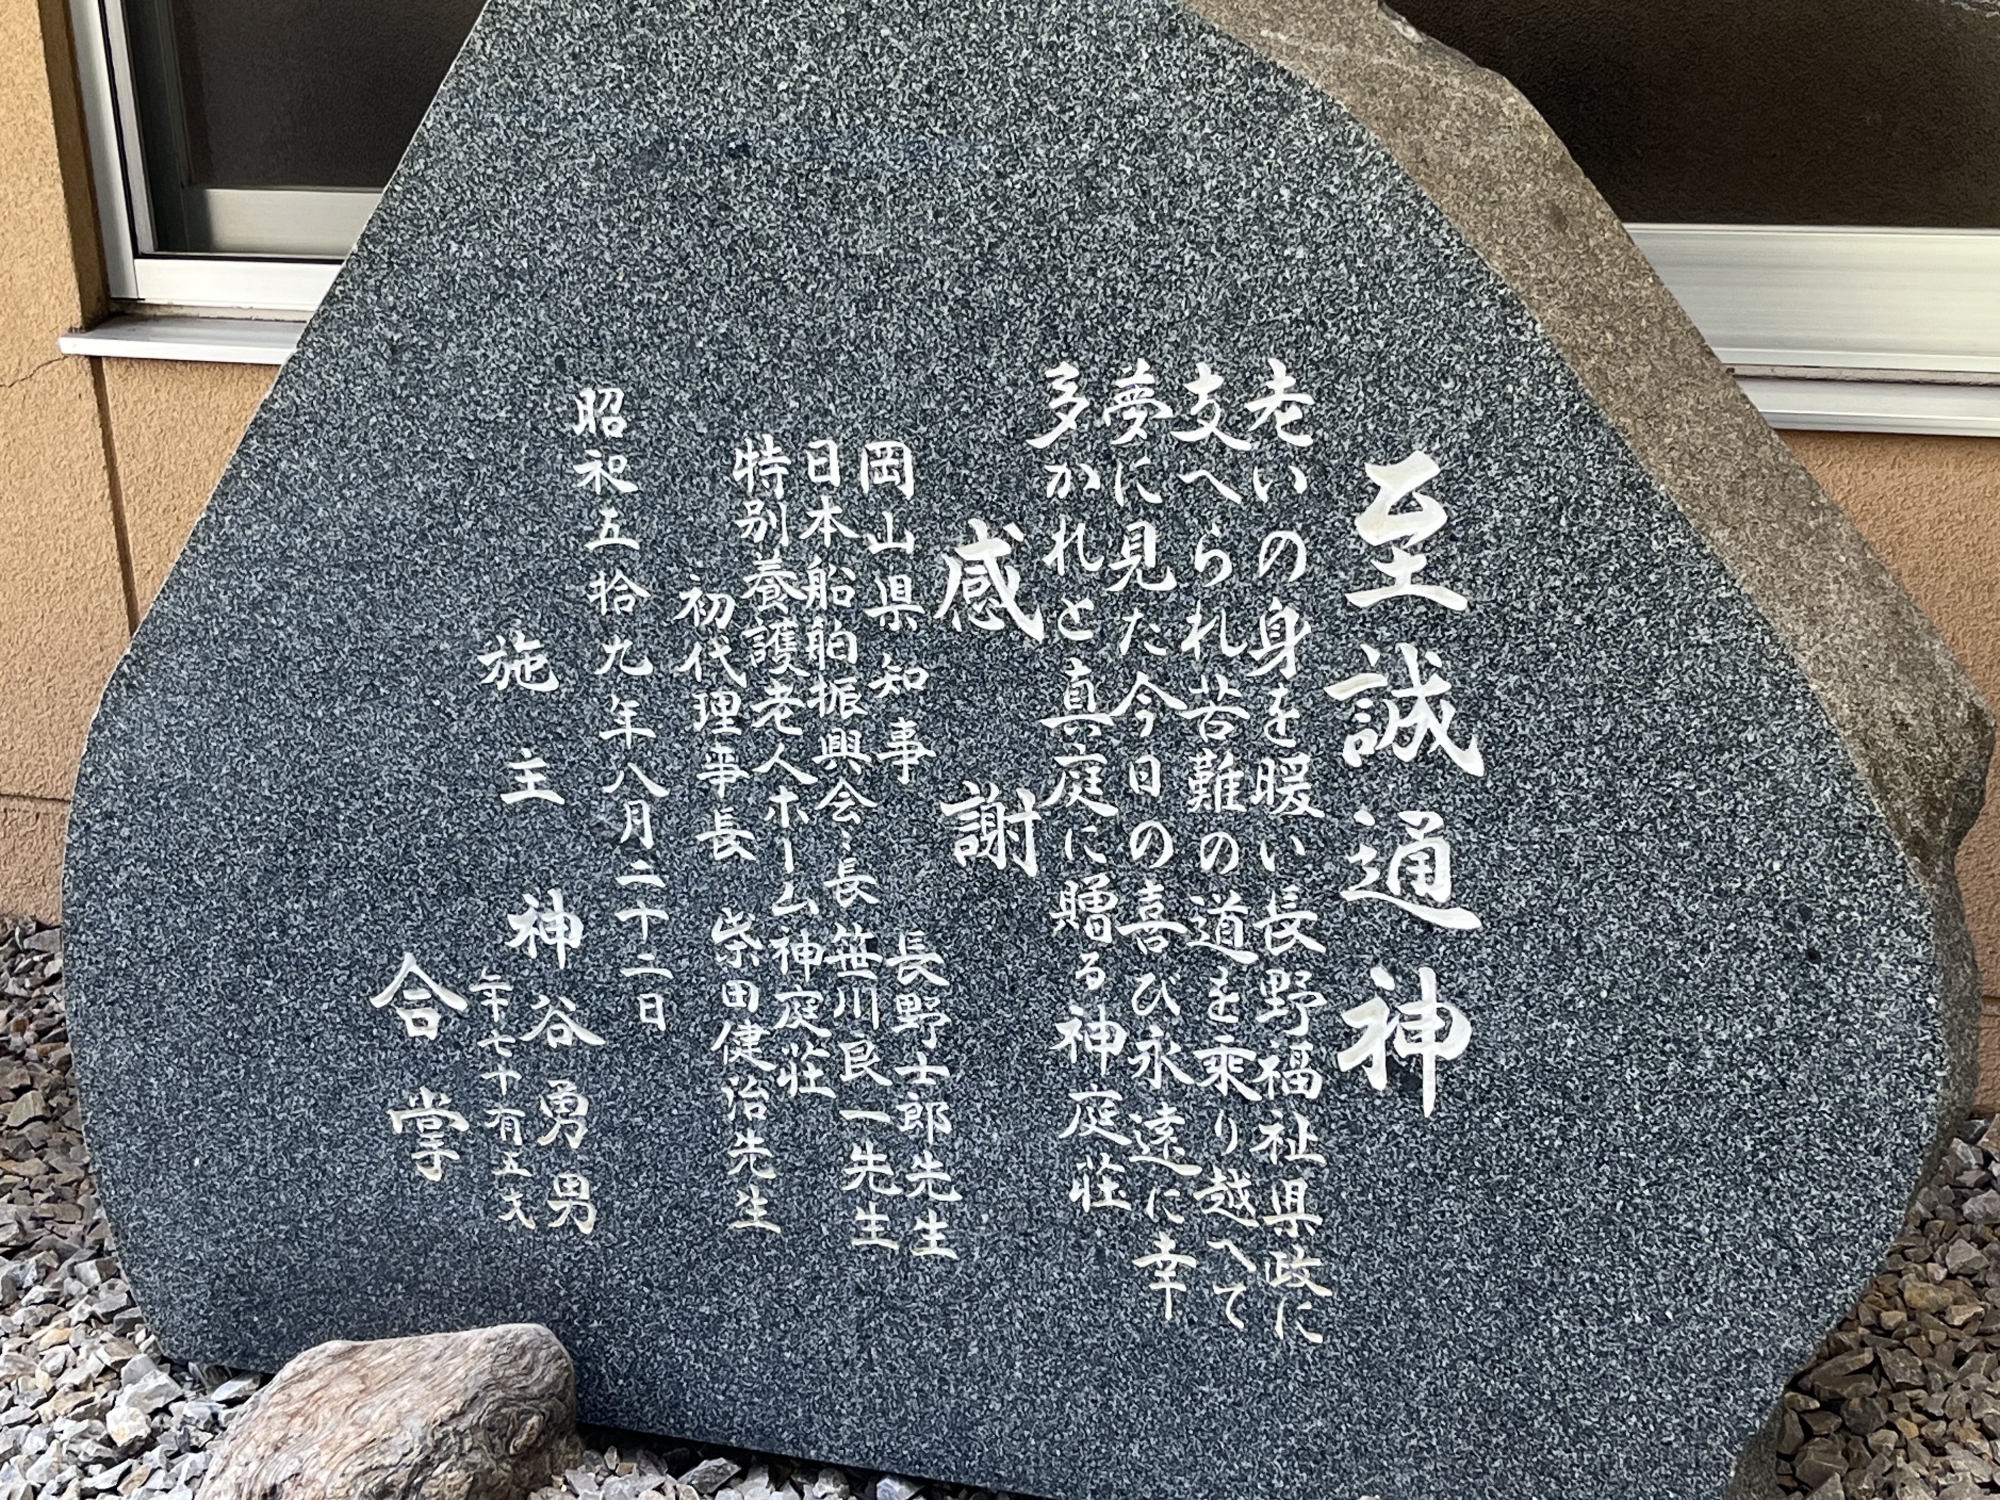 至誠通神
老いの身を暖い長野福祉県政に
支へられ苦難の道を乗り越へて
夢に見た今日の喜び永遠に幸
多かれと真庭に贈る神庭荘
感謝
岡山県知事 長野士郎先生
日本船舶振興会々長 笹川良一先生
特別養護老人ホーム神庭荘
初代理事長 柴田健治先生
昭和五拾九年八月二十二日
施主 神谷勇男
年七十有五才
合掌